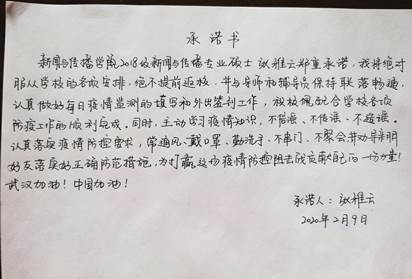 承诺书
新闻与传播学院2018级新闻与传播专业硕士 张雅云郑重承诺，我将绝对
服从学校的各项安排，绝不提前返校，并与导师和辅导员保持联落畅通，
认真做好每日疫情监测的填写和外出签到工作，积极配合学校各项
防疫工作的顺利完成。同时，主动学习疫情知识，不信谣、不传谣、不造谣。
认真落实疫情防控要求，常通风、戴口罩、勤洗手、不串门、不聚会并劝导亲朋
好友落实好正确防范措施，为打赢这场疫情防控阻击战贡献自己的一份力量！
武汉加油！中国加油！
承诺人：张雅云
2020年2月9日